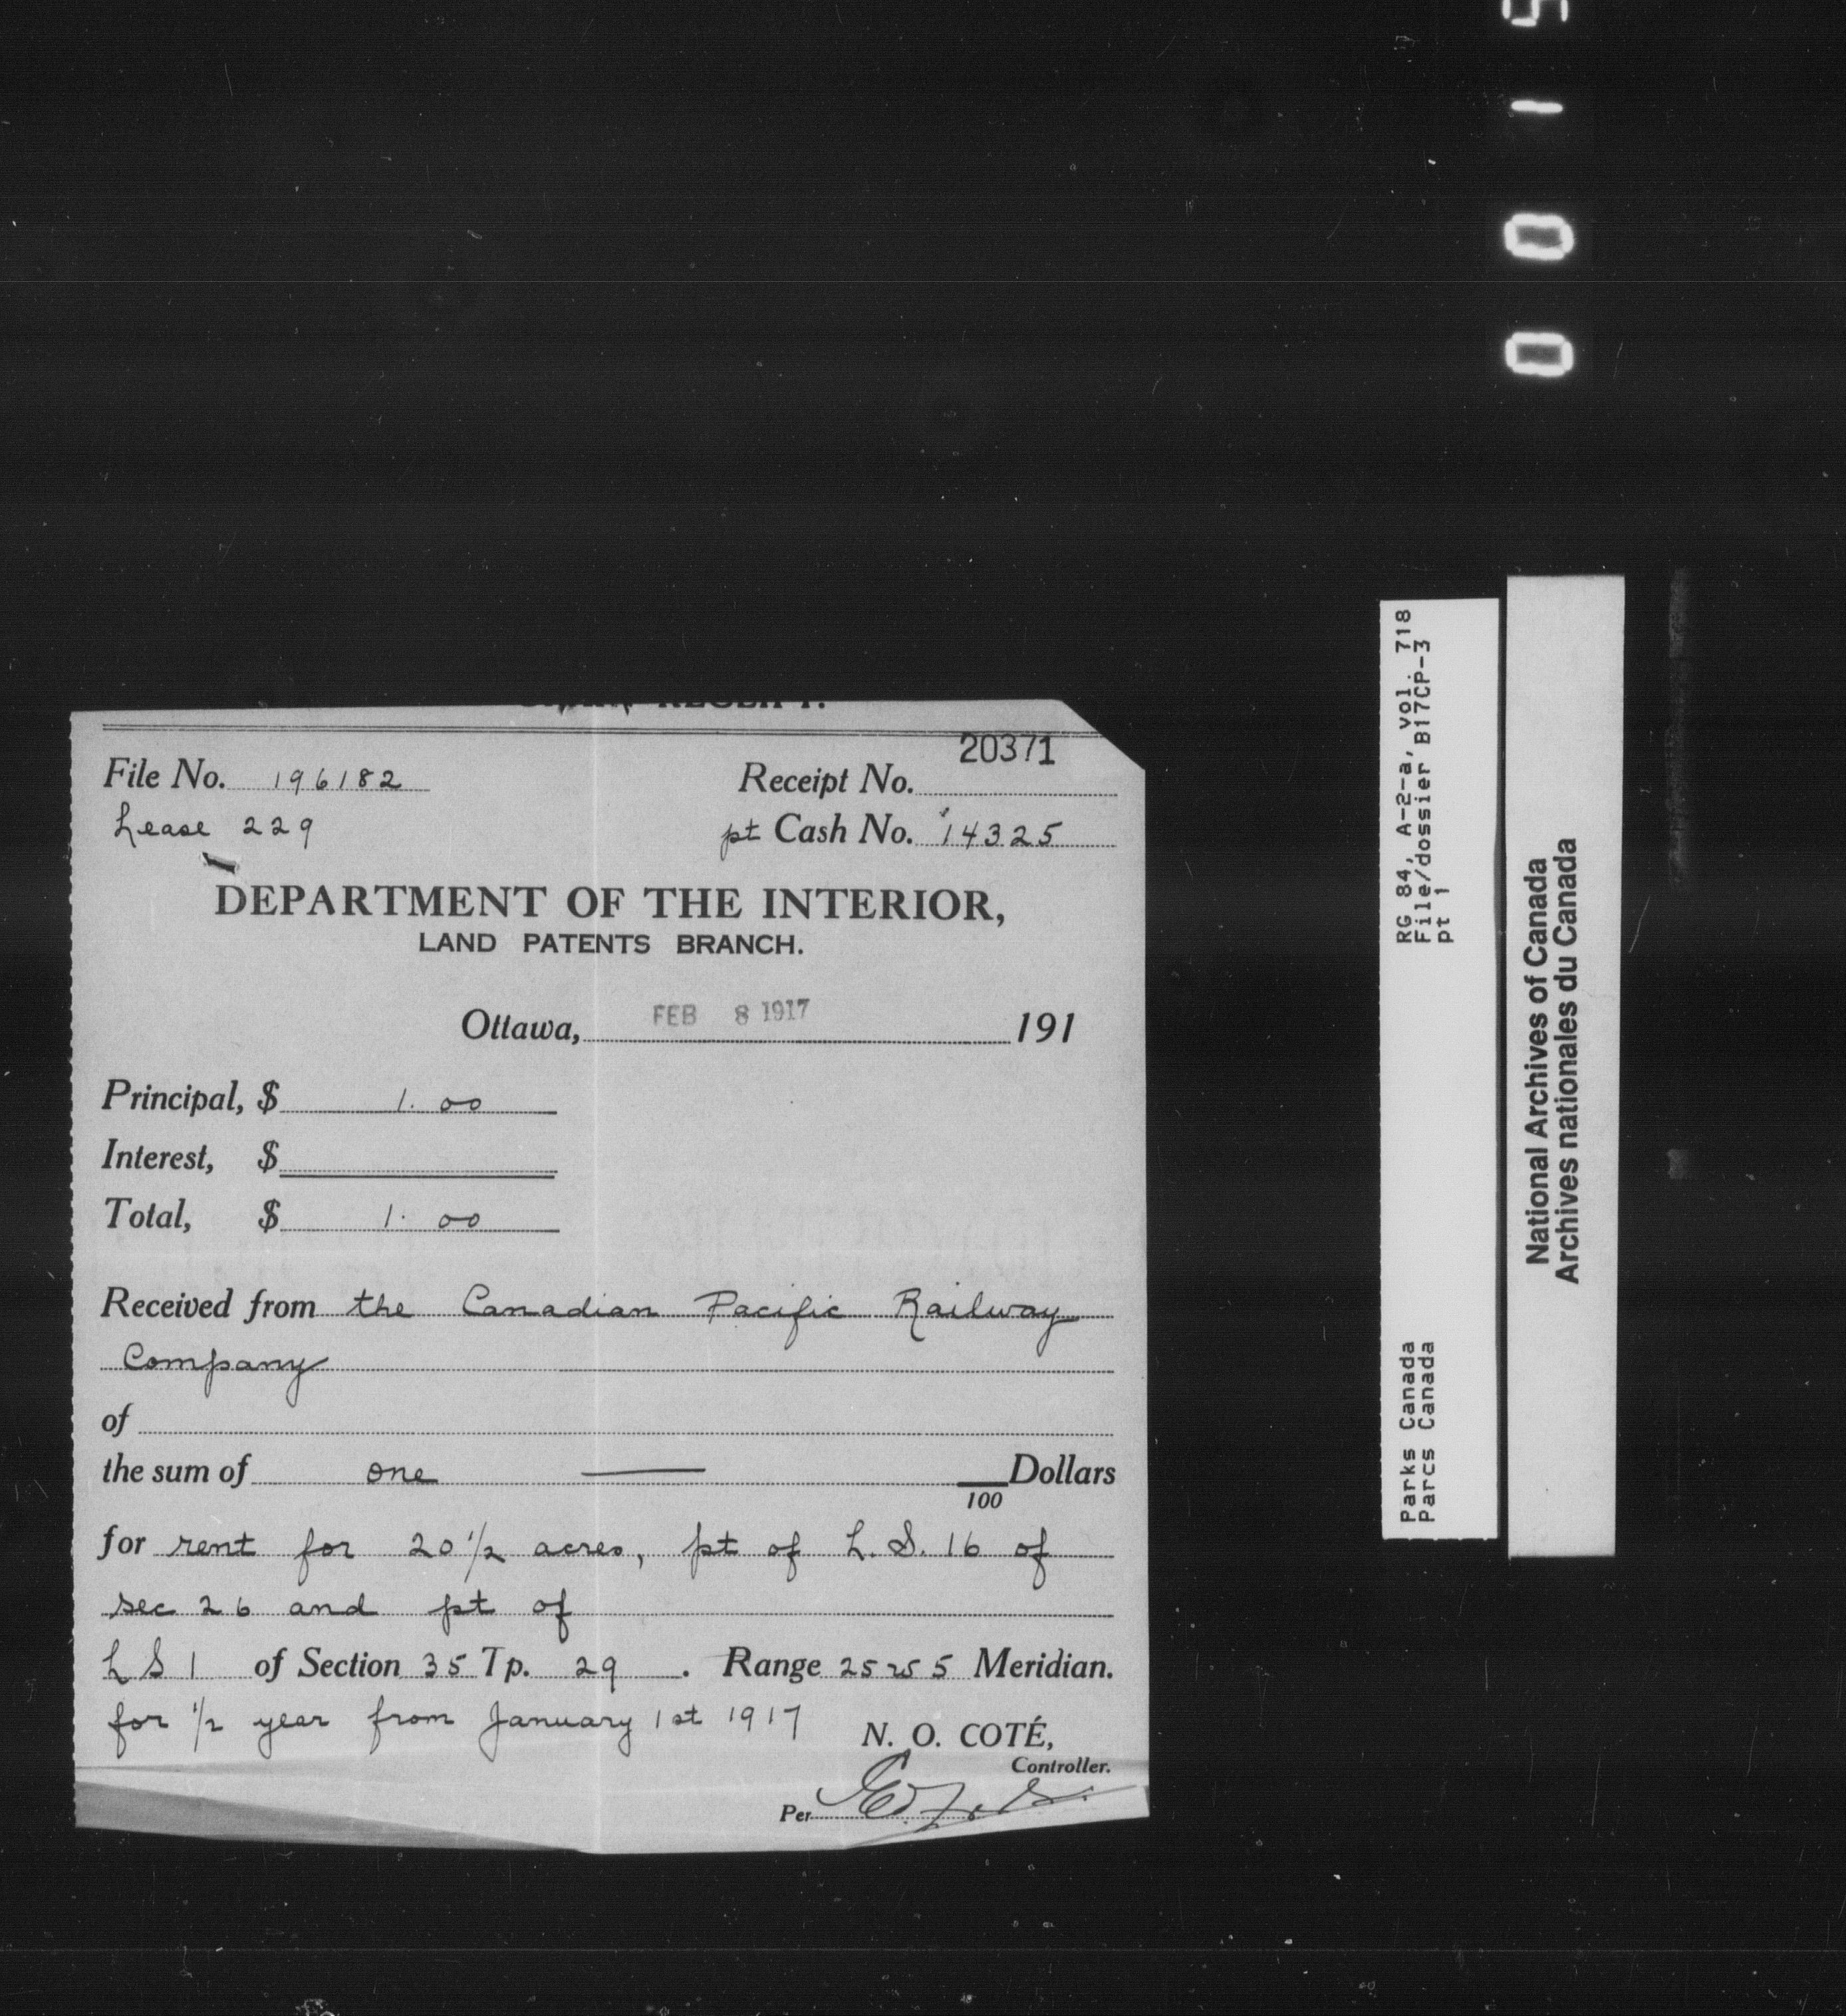 RECEIPT.
20371
File No. 196182 Receipt No.
Lease 229 pt Cash No. 14325
DEPARTMENT OF THE INTERIOR,
LAND PATENTS BRANCH.
FEB 8 1917
Ottawa, 191
Principal, $ 1.00
Interest, $
Total, $ 1.00
Received from the Canadian Pacific Railway
Company
of
the sum of one — Dollars
100
for rent for 20 1/2 acres, pt of L.S. 16 of
sec 26 and pt of
L S 1 of Section 35 Tp. 29 . Range 25 w 5 Meridian.
for 1/2 year from January 1st 1917
N. O. COTÉ,
Controller.
Per
RG 84, A-2-a, vol. 718
File/dossier B17CP-3
pt 1
Parks Canada
Parcs Canada
National Archives of Canada
Archives nationales du Canada
0015